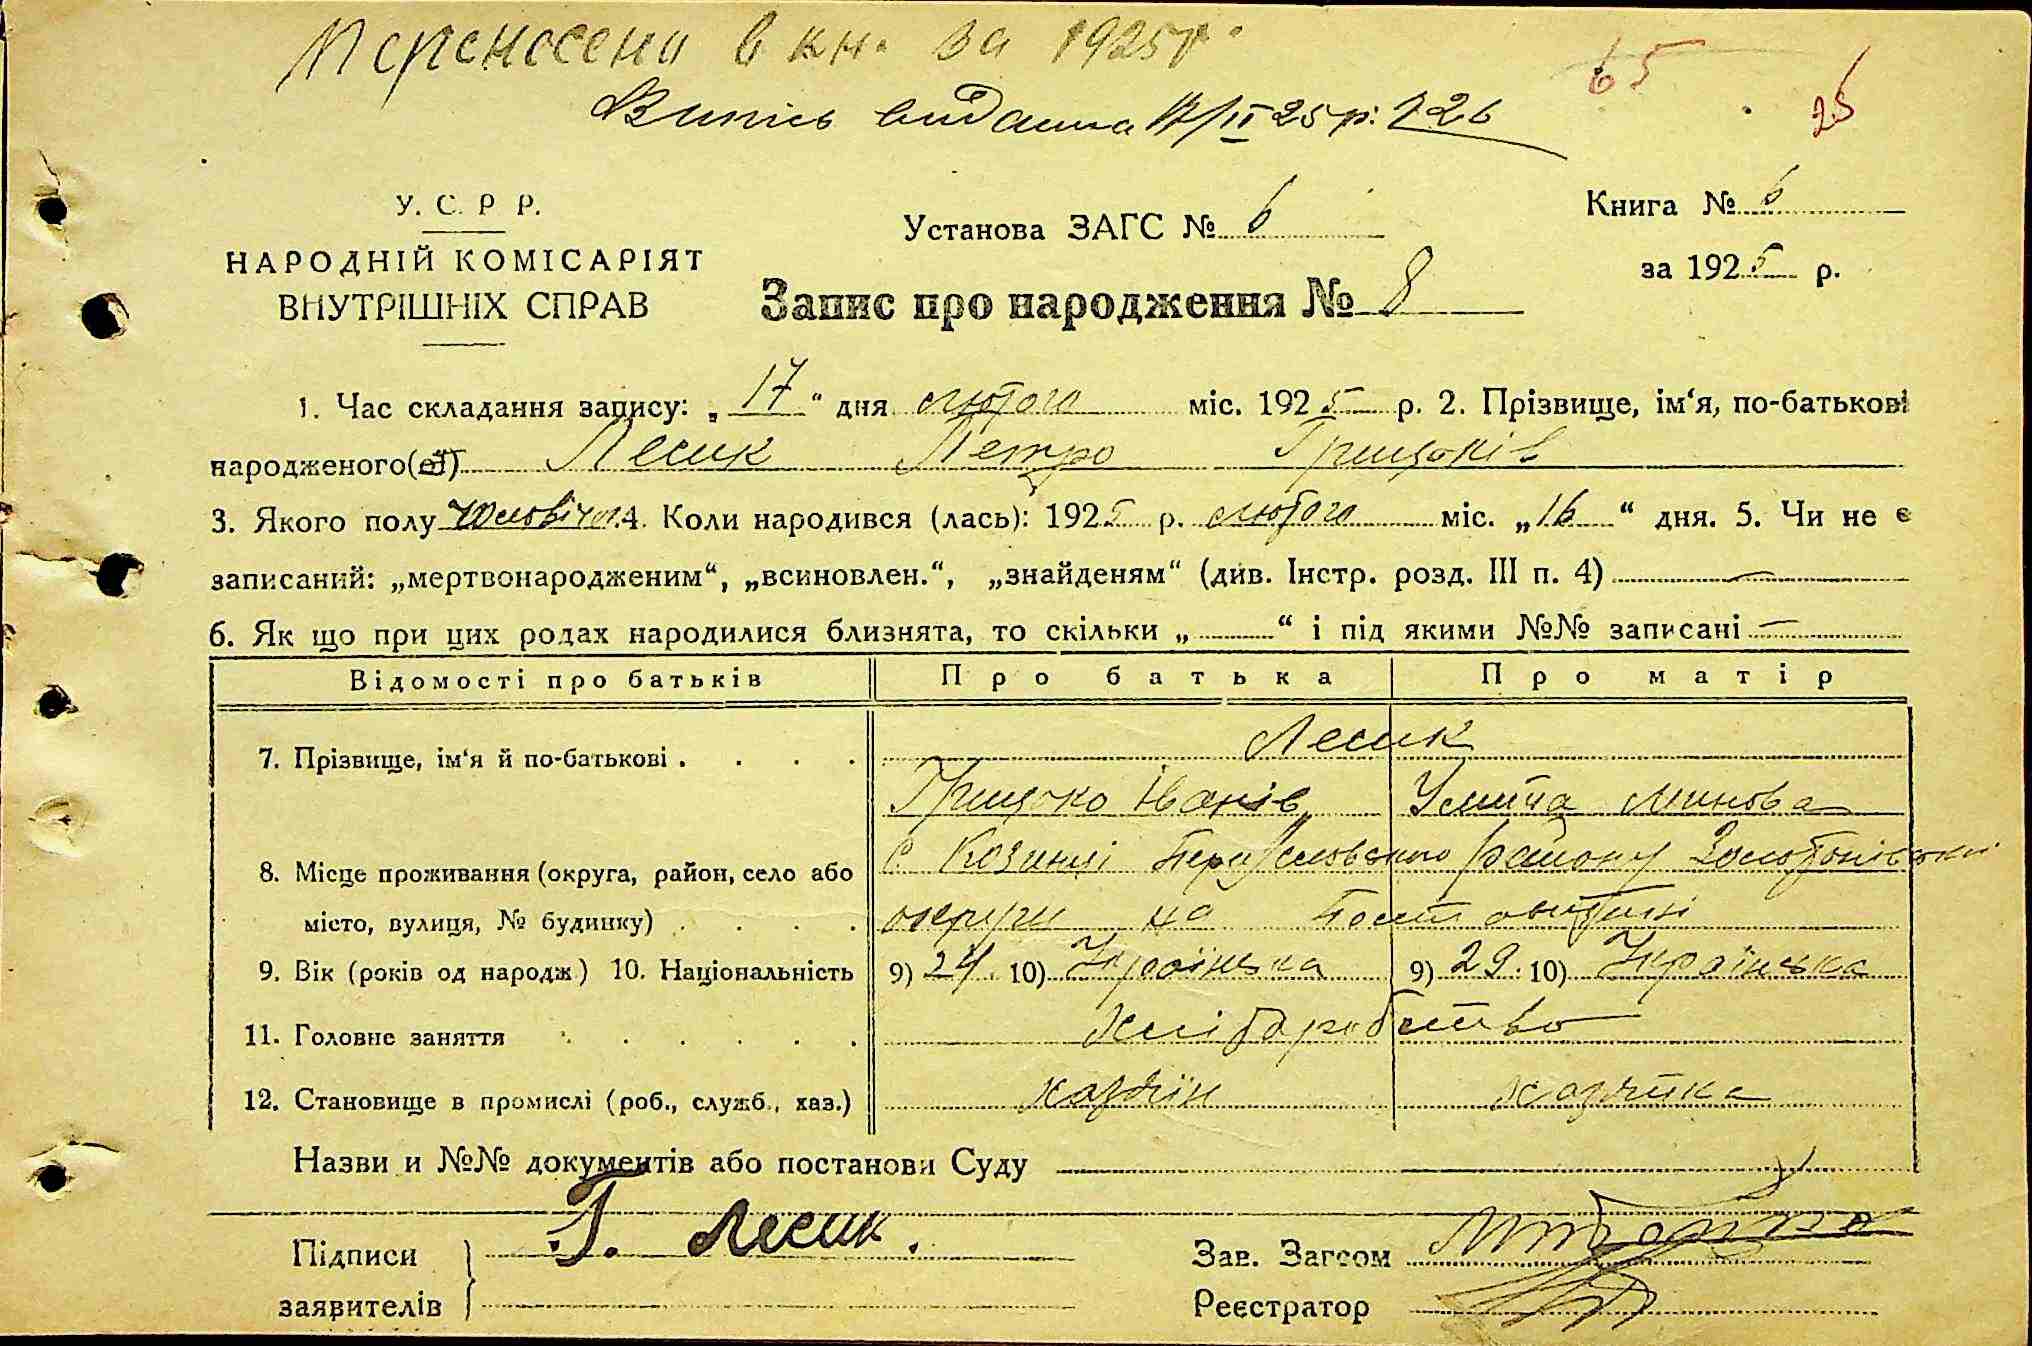 Перенесени в кн. за 1925 г.
65
25
Випись видана 17/II 25 р.
У. С. Р Р.
НАРОДНІЙ КОМІСАРІЯТ
ВНУТРІШНІХ СПРАВ
Установа ЗАГС № 6
Книга № 6
за 1925 р.
Запис про народження № 8
1. Час складання запису: „17“ дня лютого міс. 1925 р. 2. Прізвище, ім‘я, по-батькові
народженого(ої) Лесик Петро Грицьків
3. Якого полу чоловічог. 4. Коли народився (лась): 1925 р. лютого міс. „16“ дня. 5. Чи не є
записаний: „мертвонародженим“, „всиновлен.“, „знайденям“ (див. Інстр. розд. III п. 4) —
6. Як що при цих родах народилися близнята, то скільки „ “ і під якими №№ записані —
Відомості про батьків Про батька Про матір
7. Прізвище, ім‘я й по-батькові . . . . Лесик
Грицько Іванів Улита
8. Місце проживання (округа, район, село або с. Козинці району Золотоніської
місто, вулиця, № будинку) . . . . округи на Полтавщині
9. Вік (років од народж.) 10. Національність 9) 24. 10) Українська 9) 29. 10) Українська
11. Головне заняття . . . . . . Хліборобство
12. Становище в промислі (роб., служб., хаз.) хазяїн хазяйка
Назви и №№ документів або постанови Суду
Підписи Г. Лесик. Зав. Загсом
заявителів Реєстратор